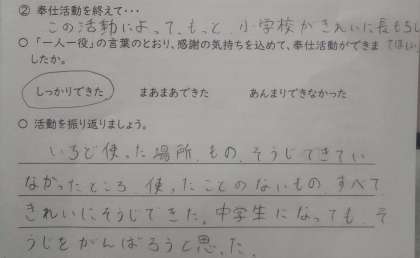 ② 奉仕活動を終えて・・・
この活動によって、もっと、小学校がきれいに長もちし
○ 「一人一役」の言葉のとおり、感謝の気持ちを込めて、奉仕活動ができま
てほしい
したか。
しっかりできた まあまあできた あんまりできなかった
○ 活動を振り返りましょう。
いろ使った場所、もの、そうじできてい
なかったところ、使ったことのないもの、すべて
きれいにそうじできた。中学生になっても、そ
うじをがんばろうと思った。